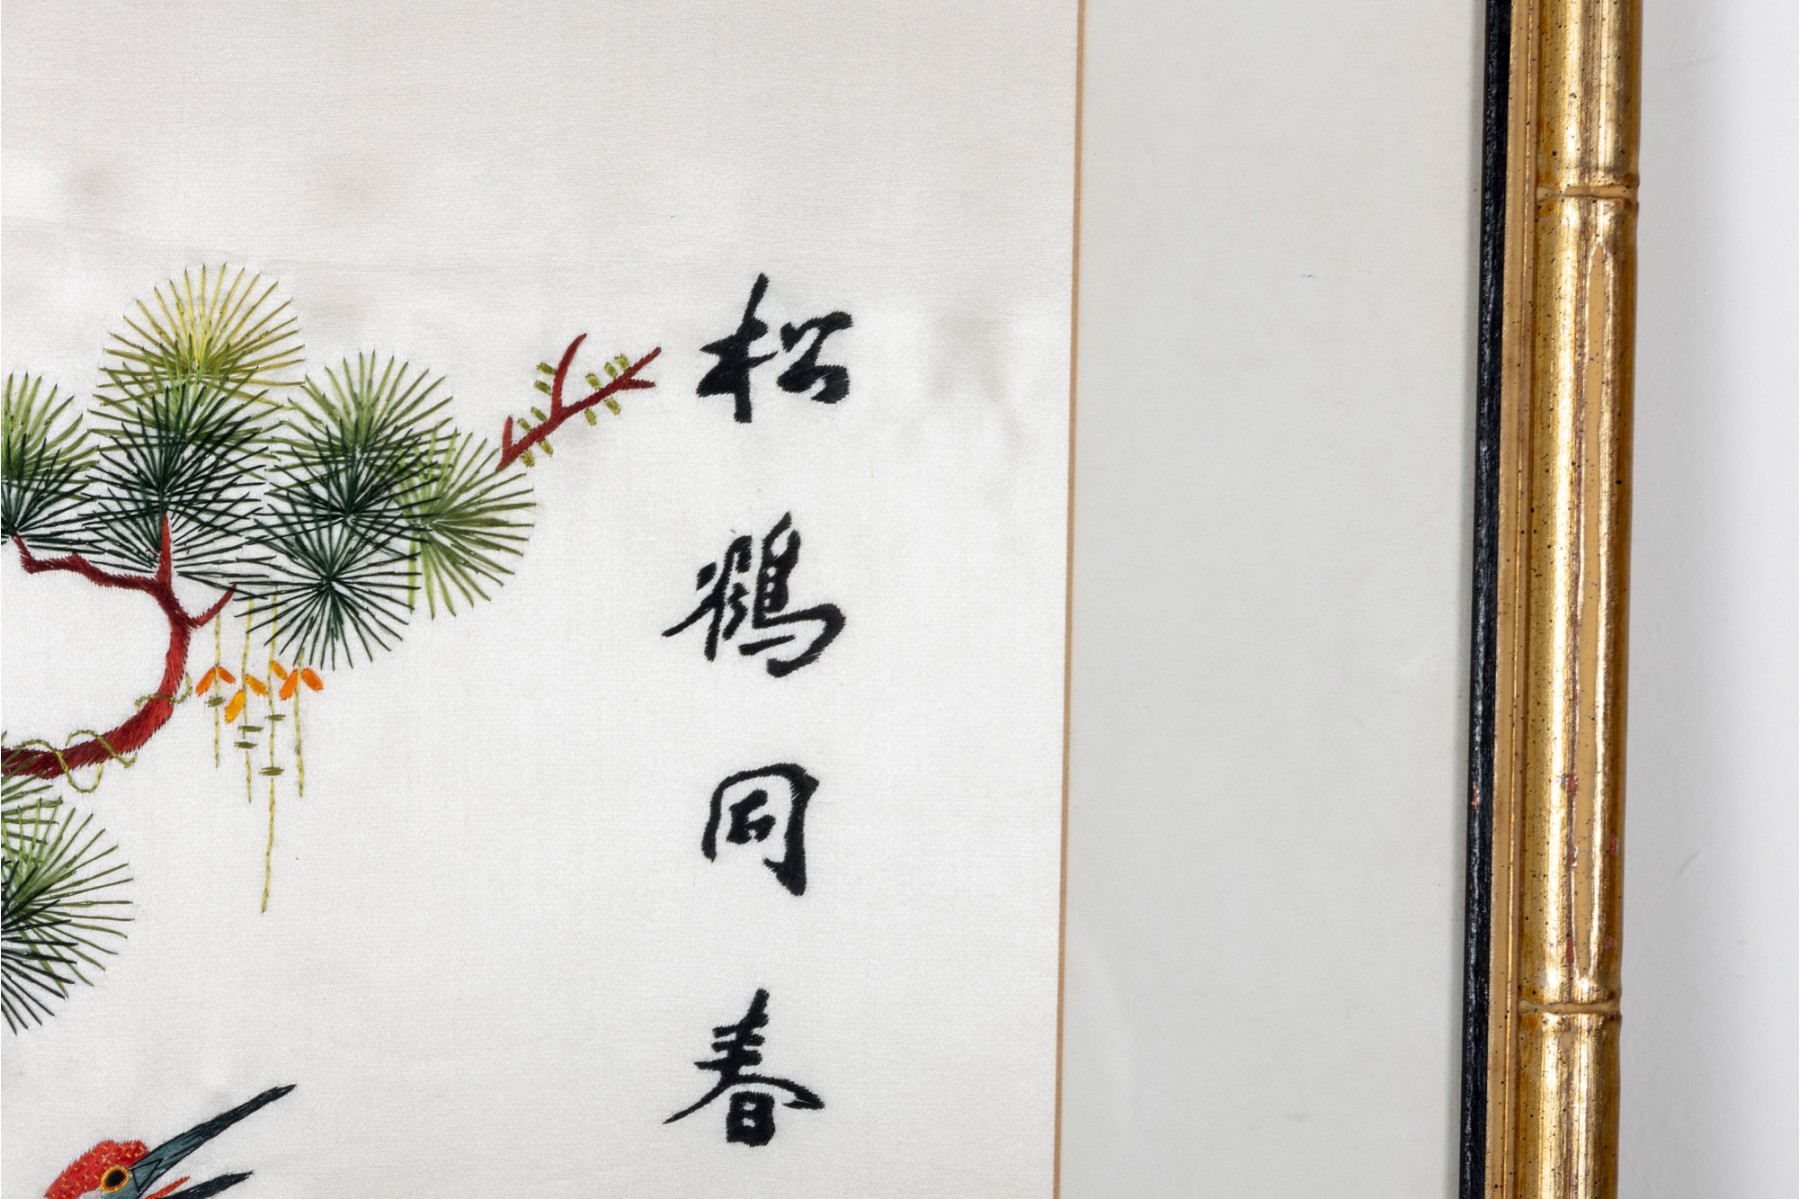 松鶴同春